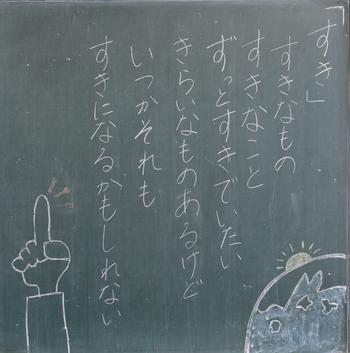 「すき」
すきなもの
すきなこと
ずっとすきでいたい
きらいなものあるけど
いつかそれも
すきになるかもしれない